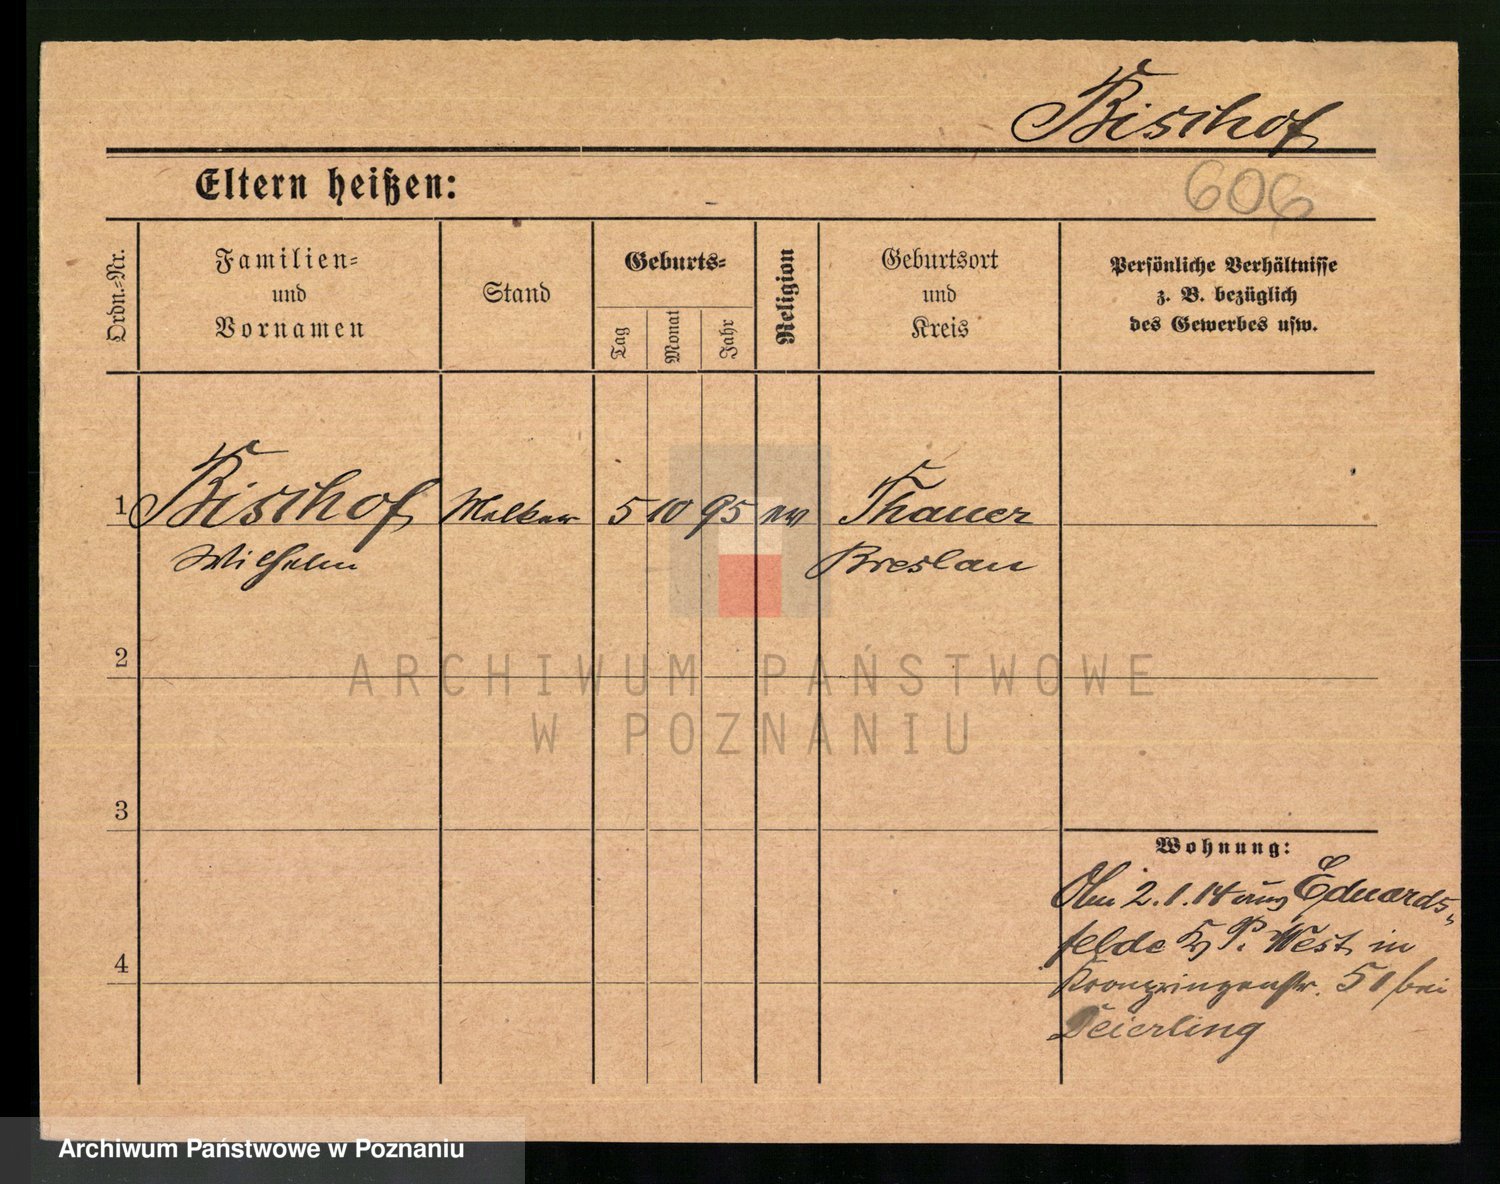 Bischof
Eltern heißen:
606
Ordn.-Nr.
Familien-
und
Vornamen
Stand
Geburts-
Tag
Monat
Jahr
Religion
Geburtsort
und
Kreis
Persönliche Verhältnisse
z. B. bezüglich
des Gewerbes usw.
1 Bischof Melker 5 10 95 ev Thauer
Wilhelm Breslau
2
ARCHIWUM PAŃSTWOWE
W POZNANIU
3
Wohnung:
2.1.14 aus Eduards-
felde P. West in
Kronprinzenstr. 51 bei
4
Archiwum Państwowe w Poznaniu